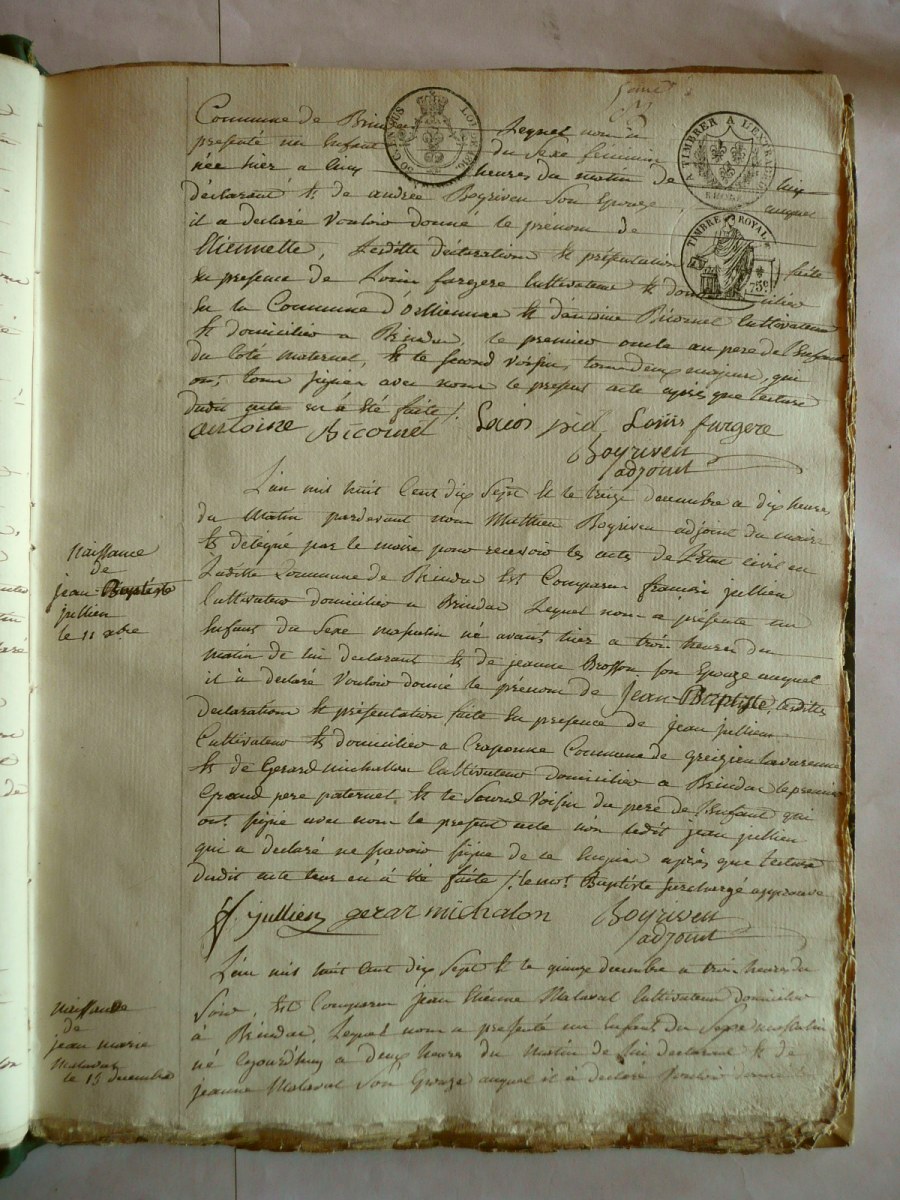 Commune de Brindas Lequel nous a
presenté un Enfant du Sexe féminin
née hier a cinq heures du matin de lui
déclarant & de andrée Boyriven Son Epouze auquel
il a declaré Vouloir donné le prénom de
Etiennette, Lesditte déclaration & présentation faite
en presence de Louis fargere Cultivateur & domicilié
Sur la Commune d'Orlienas & d'antoine Bicornet Cultivateur
& domicilié a Brindas, le premier oncle au pere de l'Enfant
du Coté maternel, & le Second Voisin, tous deux majeurs, qui
ont tous signés avec nous le present acte après que lecture
dudit acte en à été faite /.
antoine Bicornet Louis furgere
Boyriven
adjoint
L'an mil huit Cent dix Sept & le treize decembre a dix heures
du Matin pardevant nous Matthieu Boyriven adjoint du maire
& délégué par le maire pour recevoir les actes de l'Etat Civil en
Laditte Commune de Brindas Est Comparu françois jullien
Cultivateur domicilié a Brindas Lequel nous a présenté un
Enfant du Sexe masculin né avant hier a trois heures du
matin de lui declarant & de jeanne Brosson son Epouze auquel
il à declaré Vouloir donné le prénom de Jean-Baptiste, lesdittes
declarations & présentation faite En presence de jean jullien
Cultivateur & domicilié a Craponne Commune de grézieu lavarenne
& de Gerard michallon Cultivateur domicilié a Brindas le premier
Grand pere paternel & le Second Voisin du pere de l'Enfant qui
ont signé avec nous le present acte non ledit jean jullien
qui a declaré ne savoir signé de ce Enquis après que lecture
dudit acte leur en à été faite /. le mot Baptiste surchargé approuvé
jullien gerar michalon Boyriven
adjoint
L'an mil huit cent dix Sept & le quinze decembre a trois heures du
Soir, Est Comparu jean Etienne Malaval Cultivateur domicilié
à Brindas, Lequel nous a presenté un Enfant du Sexe masculin
né Cejourd'huy a deux heures du Matin de lui declarant & de
jeanne Malaval Son Epouze auquel il à declaré Vouloir
Naissance
de
jean Baptiste
jullien
le 11 xbre
Naissance
de
jean marie
Malaval
le 15 decembre
A TIMBRER A L'EXTRAORD
RHONE
TIMBRE ROYAL
75c